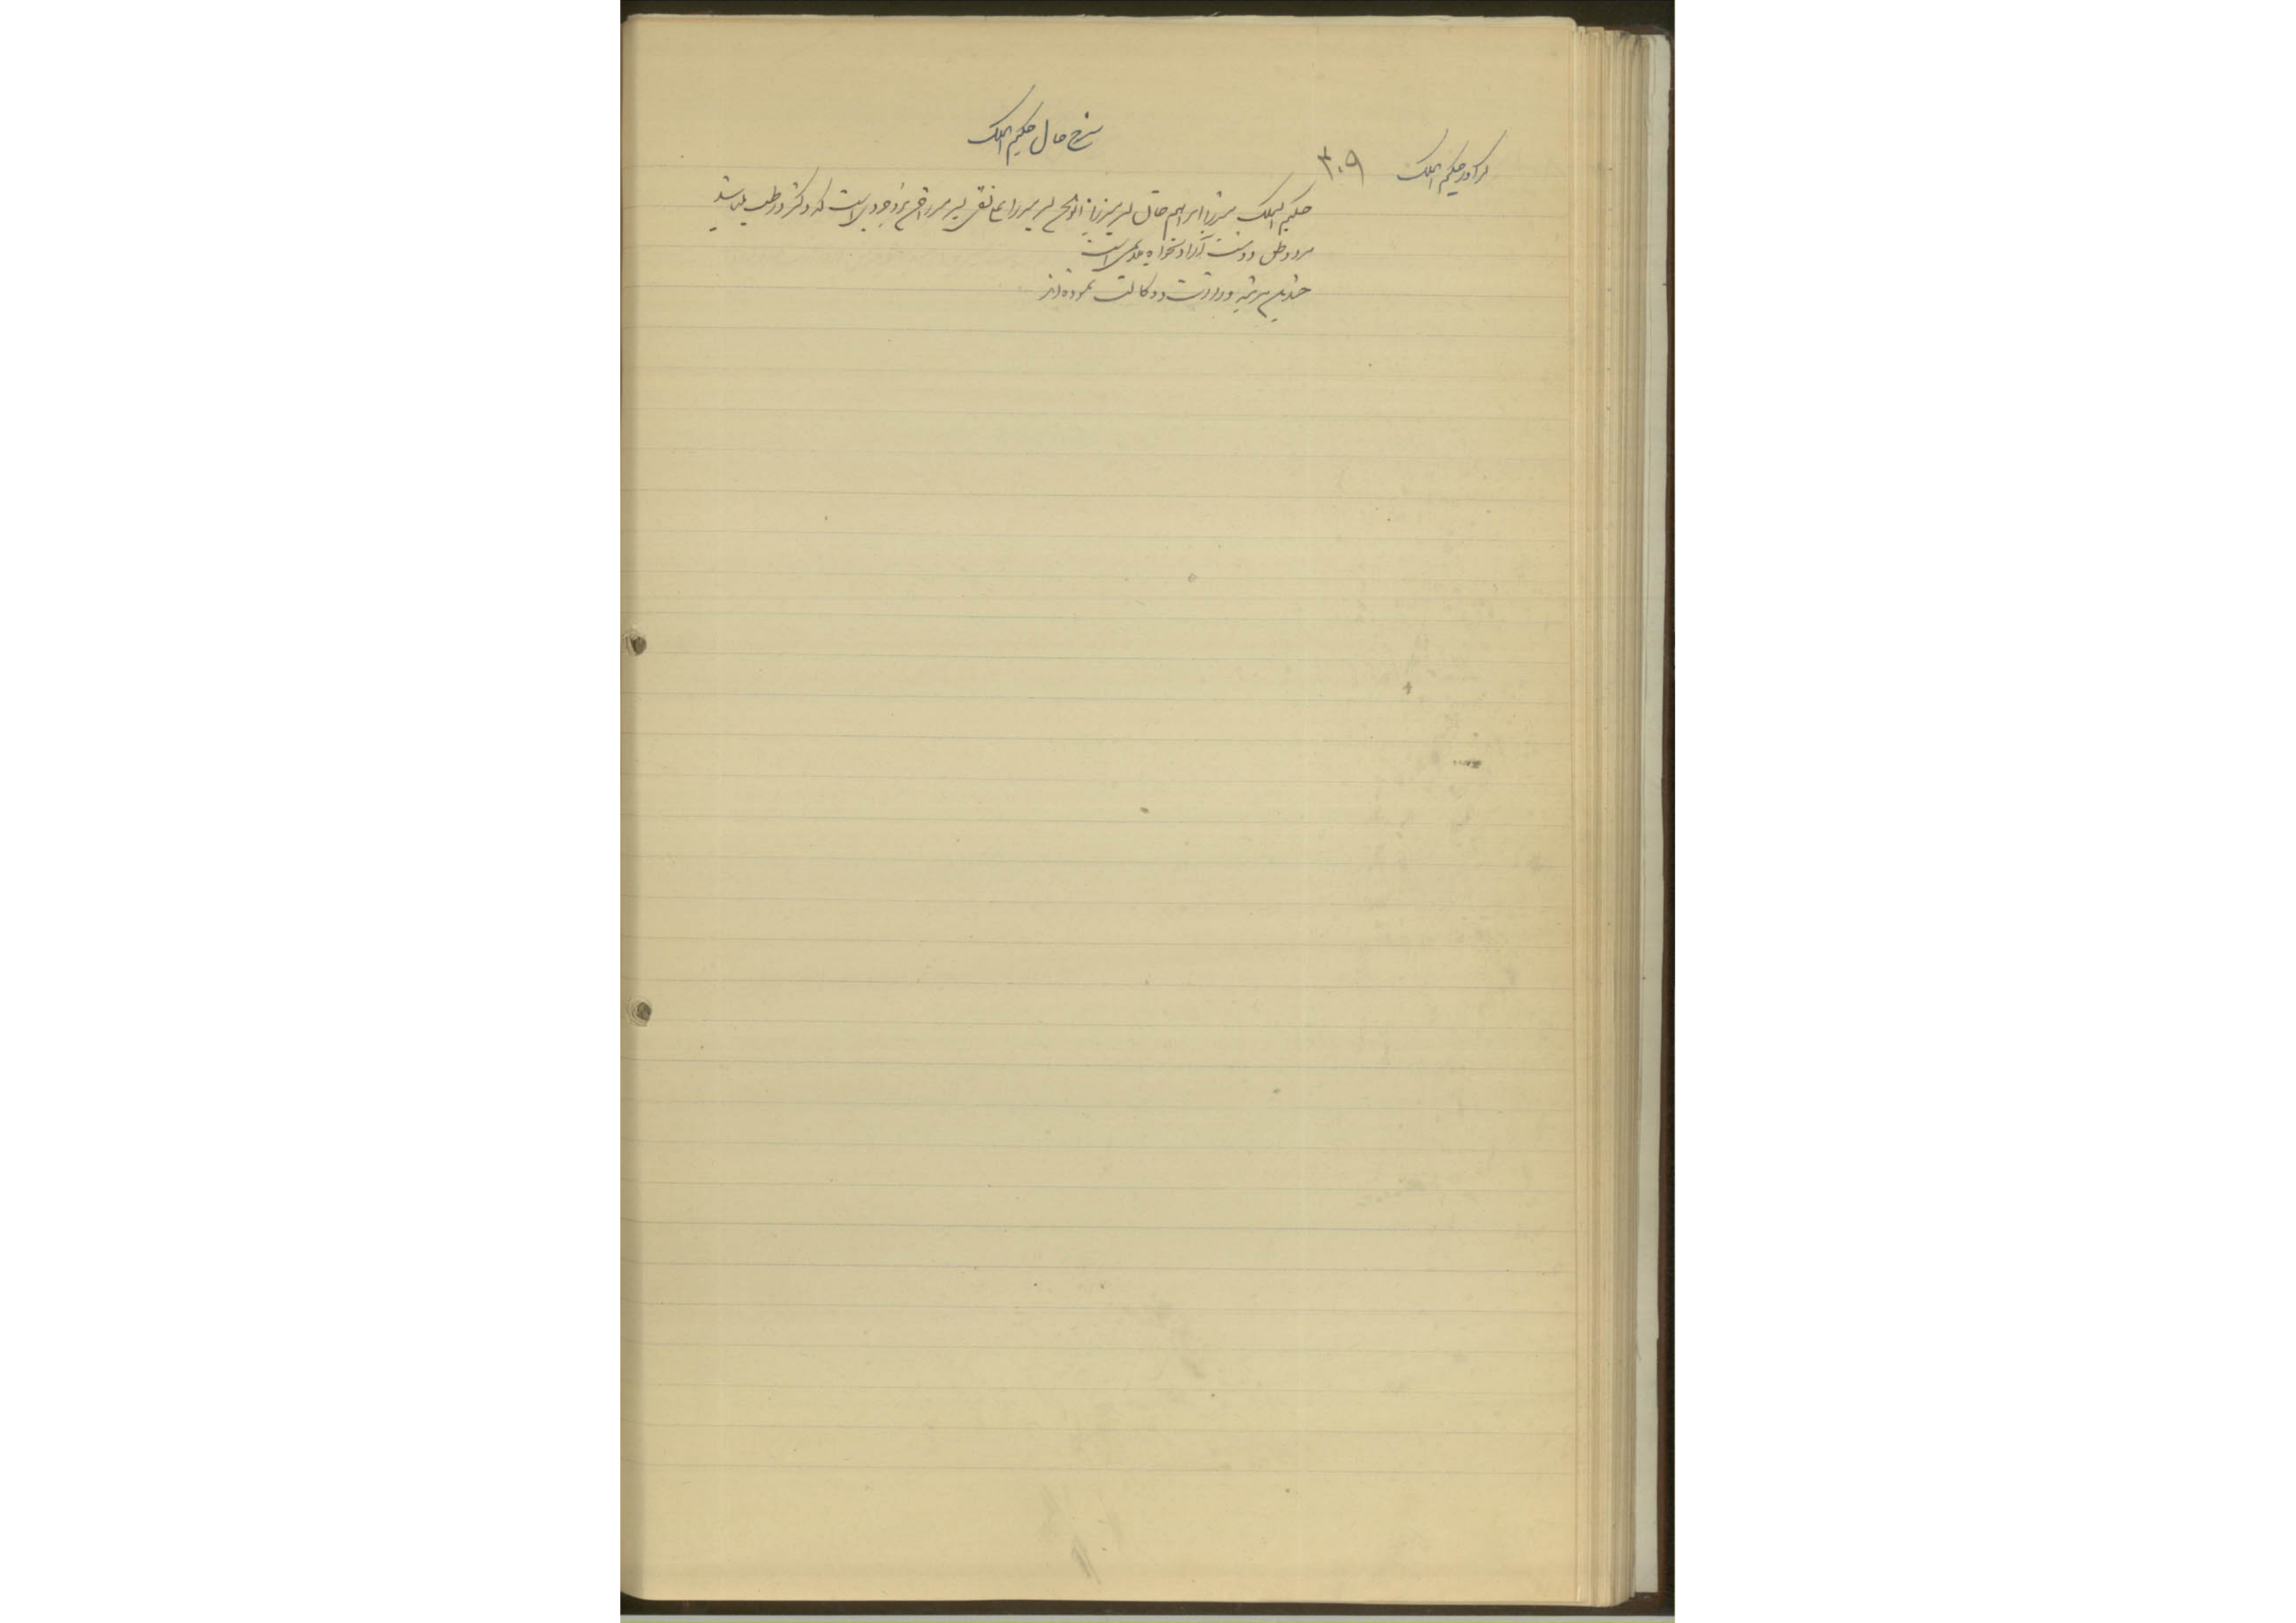 شرح حال حکیم الملک
گراور حکیم الملک
۳۰۹
حکیم الملک میرزا ابراهیم خان پسر میرزا ابوالحسن پسر میرزا علینقی پسر میرزا است که دکتر در طب میباشد
مرد وطن دوست آزادیخواه است
چندین مرتبه وزارت و وکالت نموده‌اند